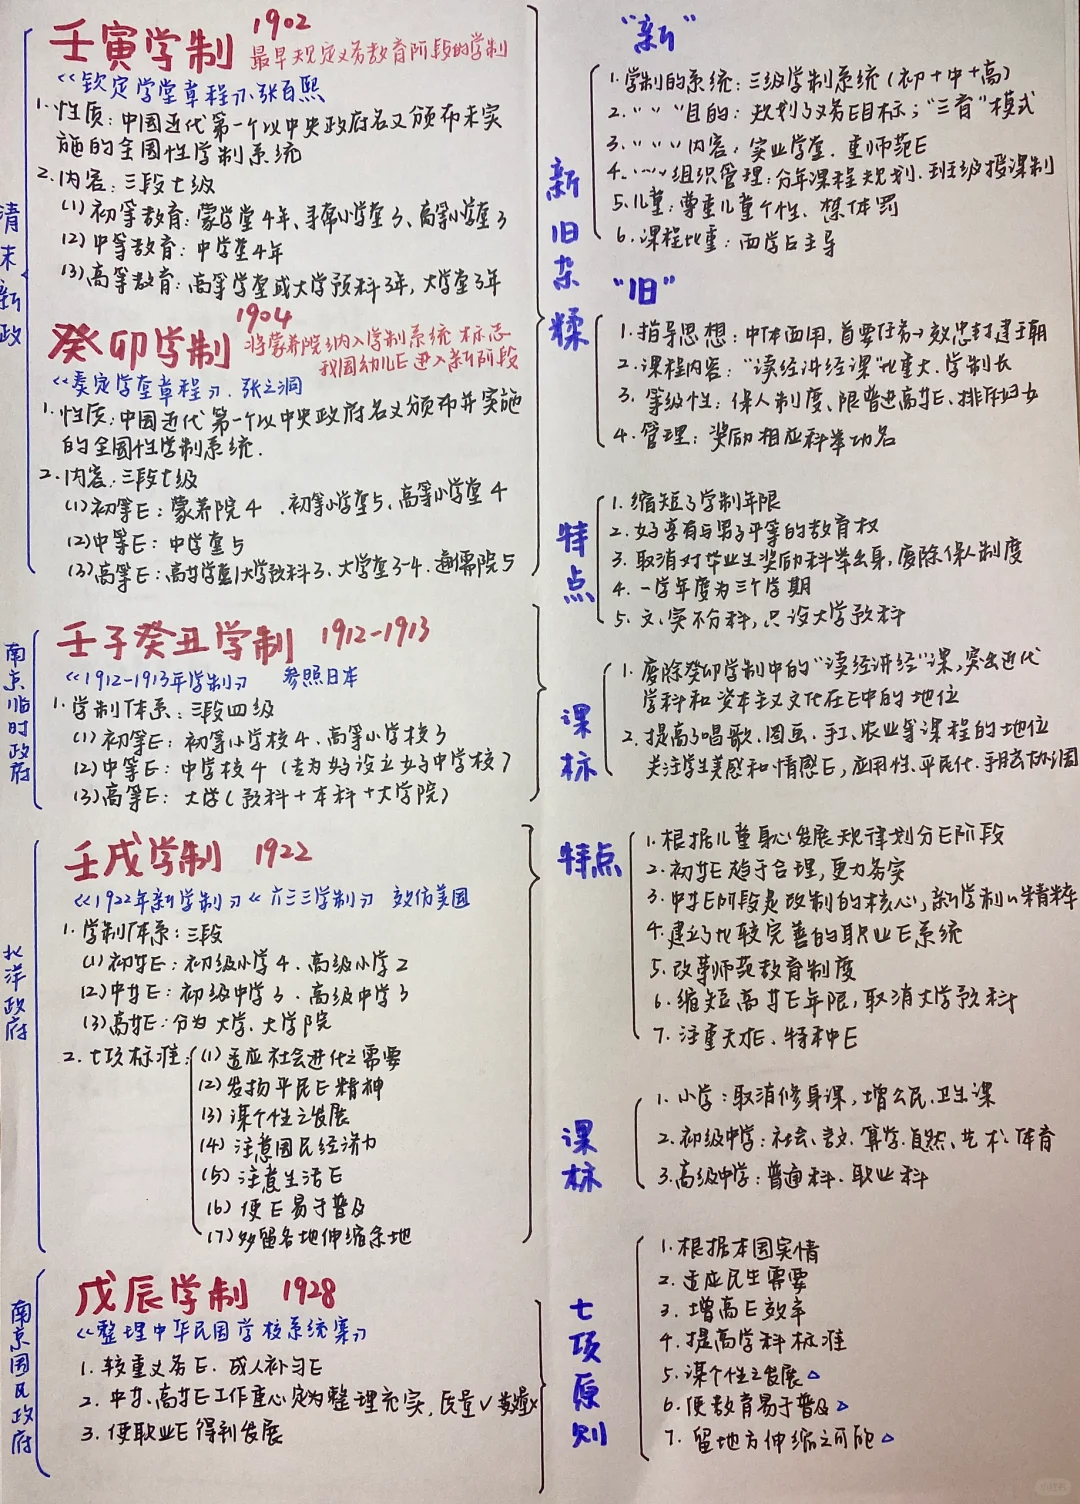 清末新政
壬寅学制 1902
最早规定义务教育阶段的学制
《钦定学堂章程》张百熙
1.性质:中国近代第一个以中央政府名义颁布未实
施的全国性学制系统
2.内容:三段七级
(1)初等教育:蒙学堂4年、寻常小学堂3、高等小学堂3
(2)中等教育:中学堂4年
(3)高等教育:高等学堂或大学预科3年,大学堂3年
癸卯学制 1904
将蒙养院纳入学制系统 标志
我国幼儿E进入新阶段
《奏定学堂章程》.张之洞
1.性质:中国近代第一个以中央政府名义颁布并实施
的全国性学制系统.
2.内容:三段七级
(1)初等E:蒙养院4、初等小学堂5、高等小学堂4
(2)中等E:中学堂5
(3)高等E:高等学堂/大学预科3、大学堂3-4.通儒院5
新旧杂糅
“新”
1.学制的系统:三级学制系统(初+中+高)
2.〃〃〃目的:规划了义务E目标;“三育”模式
3.〃〃〃内容:实业学堂.重师范E
4.〃〃组织管理:分年课程规划.班级授课制
5.儿童:尊重儿童个性、禁体罚
6.课程比重:西学占主导
“旧”
1.指导思想:中体西用,首要任务→效忠封建王朝
2.课程内容:“读经讲经课”比重大.学制长
3.等级性:保人制度、限普进高等E、排斥妇女
4.管理:奖励相应科举功名
南京临时政府
壬子癸丑学制 1912-1913
《1912-1913年学制》 参照日本
1.学制体系:三段四级
(1)初等E:初等小学校4、高等小学校3
(2)中等E:中学校4(专为女子设立女子中学校)
(3)高等E:大学(预科+本科+大学院)
特点
1.缩短了学制年限
2.女子享有与男子平等的教育权
3.取消对毕业生奖励科举出身,废除保人制度
4.一学年度为三个学期
5.文、实不分科,只设大学预科
课标
1.废除癸卯学制中的“读经讲经”课,突出近代
学科和资本主义文化在E中的地位
2.提高了唱歌、图画、手工、农业等课程的地位
关注学生美感和情感E,应用性、平民化.手脑协调
北洋政府
壬戌学制 1922
《1922年新学制》《六三三学制》 效仿美国
1.学制体系:三段
(1)初等E:初级小学4、高级小学2
(2)中等E:初级中学3、高级中学3
(3)高等E:分为大学、大学院
2.七项标准:(1)适应社会进化之需要
(2)发扬平民E精神
(3)谋个性之发展
(4)注意国民经济力
(5)注意生活E
(6)使E易于普及
(7)多留各地伸缩余地
特点
1.根据儿童身心发展规律划分E阶段
2.初等E趋于合理,更力务实
3.中等E阶段是改制的核心,新学制的精粹
4.建立了比较完善的职业E系统
5.改革师范教育制度
6.缩短高等E年限,取消大学预科
7.注重天才E、特种E
课标
1.小学:取消修身课,增公民.卫生课
2.初级中学:社会、言文、算学.自然、艺术、体育
3.高级中学:普通科、职业科
南京国民政府
戊辰学制 1928
《整理中华民国学校系统案》
1.较重义务E.成人补习E
2.中等、高等E工作重心定为整理充实,质量✓数量×
3.使职业E得到发展
七项原则
1.根据本国实情
2.适应民生需要
3.增高E效率
4.提高学科标准
5.谋个性之发展△
6.使教育易于普及△
7.留地方伸缩之可能△
小红书